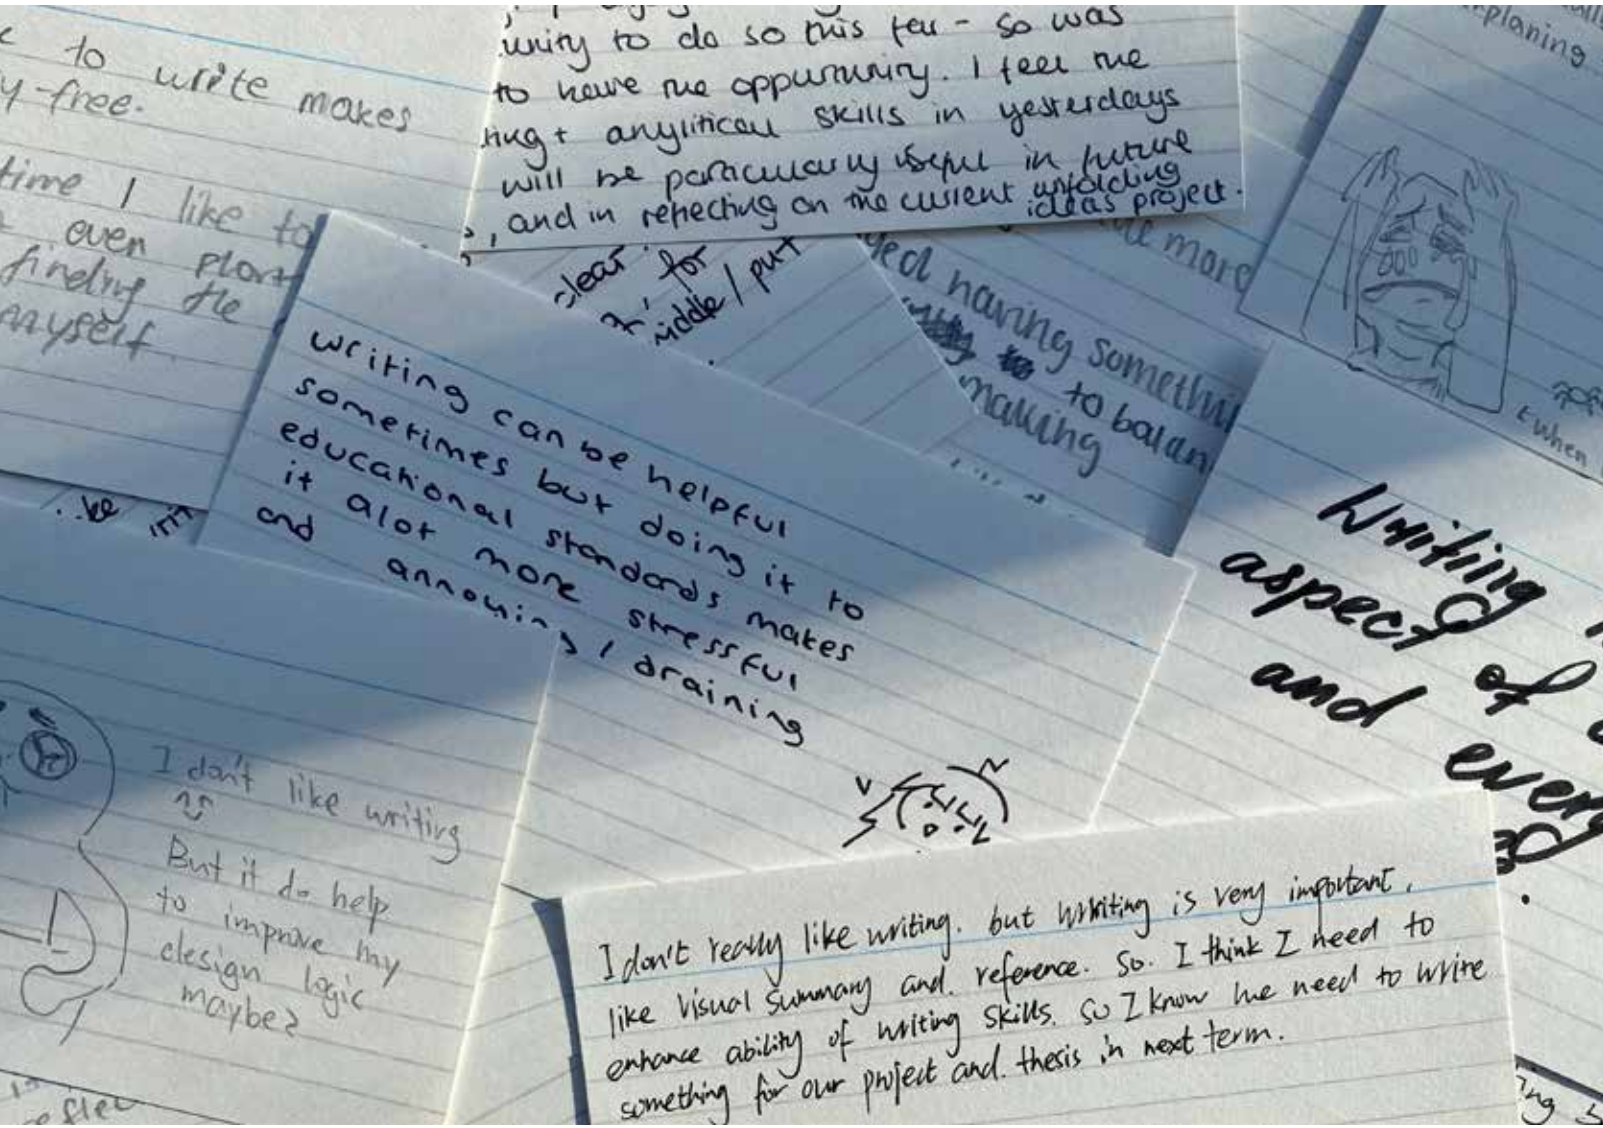 to write makes
y-free.
time I like to
even plant
finding the
myself.
unity to do so this far - so was
to have the oppurtunity. I feel the
ting + anyliticall skills in yesterdays
will be particularly useful in future
, and in reflecting on the current unfolding
ideas project.
clear
for
middle / put
more
planing
having somethin
to balan
making
when
writing can be helpful
sometimes but doing it to
educational standards makes
it alot more stressful
and annoying / draining
Writing
aspect of
and every
be
I don't like writing
But it do help
to improve my
design logic
maybe?
I don't really like writing. but writing is very important,
like visual summary and. reference. So. I think I need to
enhance ability of writing skills. So I know we need to write
something for our project and. thesis in next term.